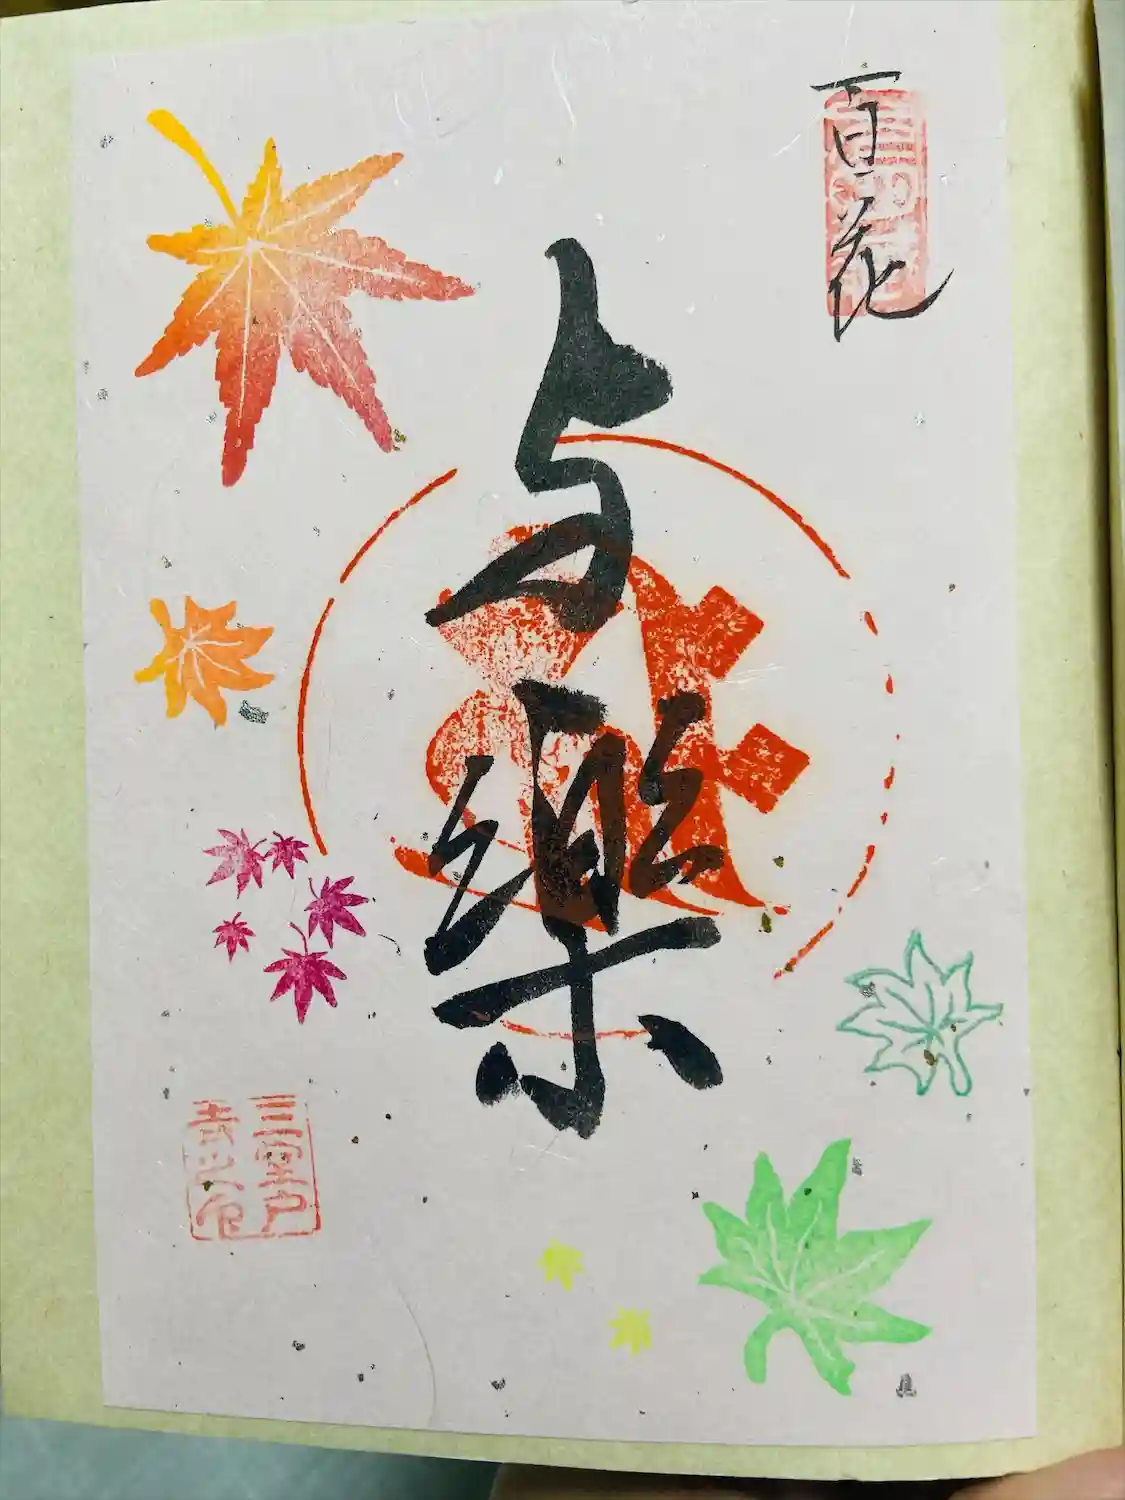 百花
与樂
三室戸
寺之印